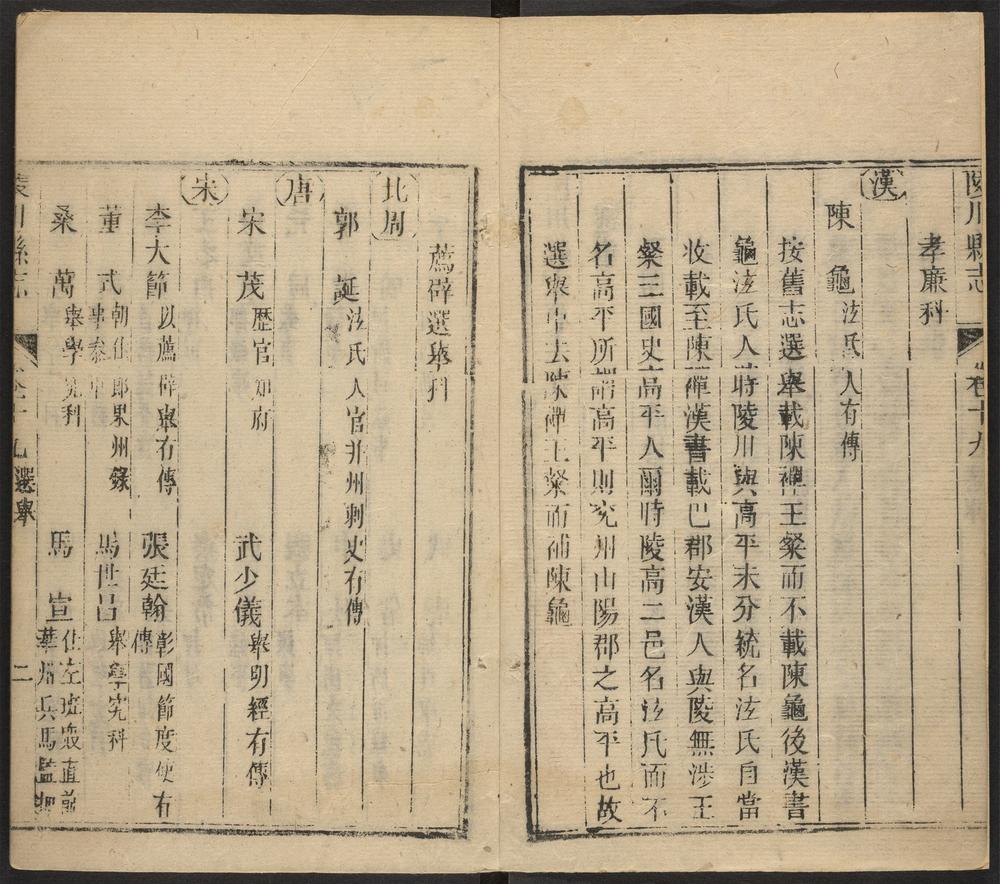 陵川縣志
卷十九
孝廉科
漢
陳 龜 泫氏人有傳
按舊志選舉載陳禪王粲而不載陳龜後漢書
龜泫氏人時陵川與高平未分統名泫氏自當
收載至陳禪漢書載巴郡安漢人與陵無涉王
粲三國史高平人爾時陵高二邑名泫氏而不
名高平所謂高平則兖州山陽郡之高平也故
選舉中去陳禪王粲而補陳龜
薦辟選舉科
北周
郭 誕 泫氏人官并州刺史有傳
唐
宋 茂 歷官知府
武少儀 舉明經有傳
宋
李大節 以薦辟舉有傳
張廷翰 彰國節度使有
傳
董 式 朝仕郎果州錄
事參軍
馬世昌 舉學究科
桑 萬 舉學究科
馬 宣 仕左班殿直前
華州兵馬監押
陵川縣志
卷十九 選舉
二